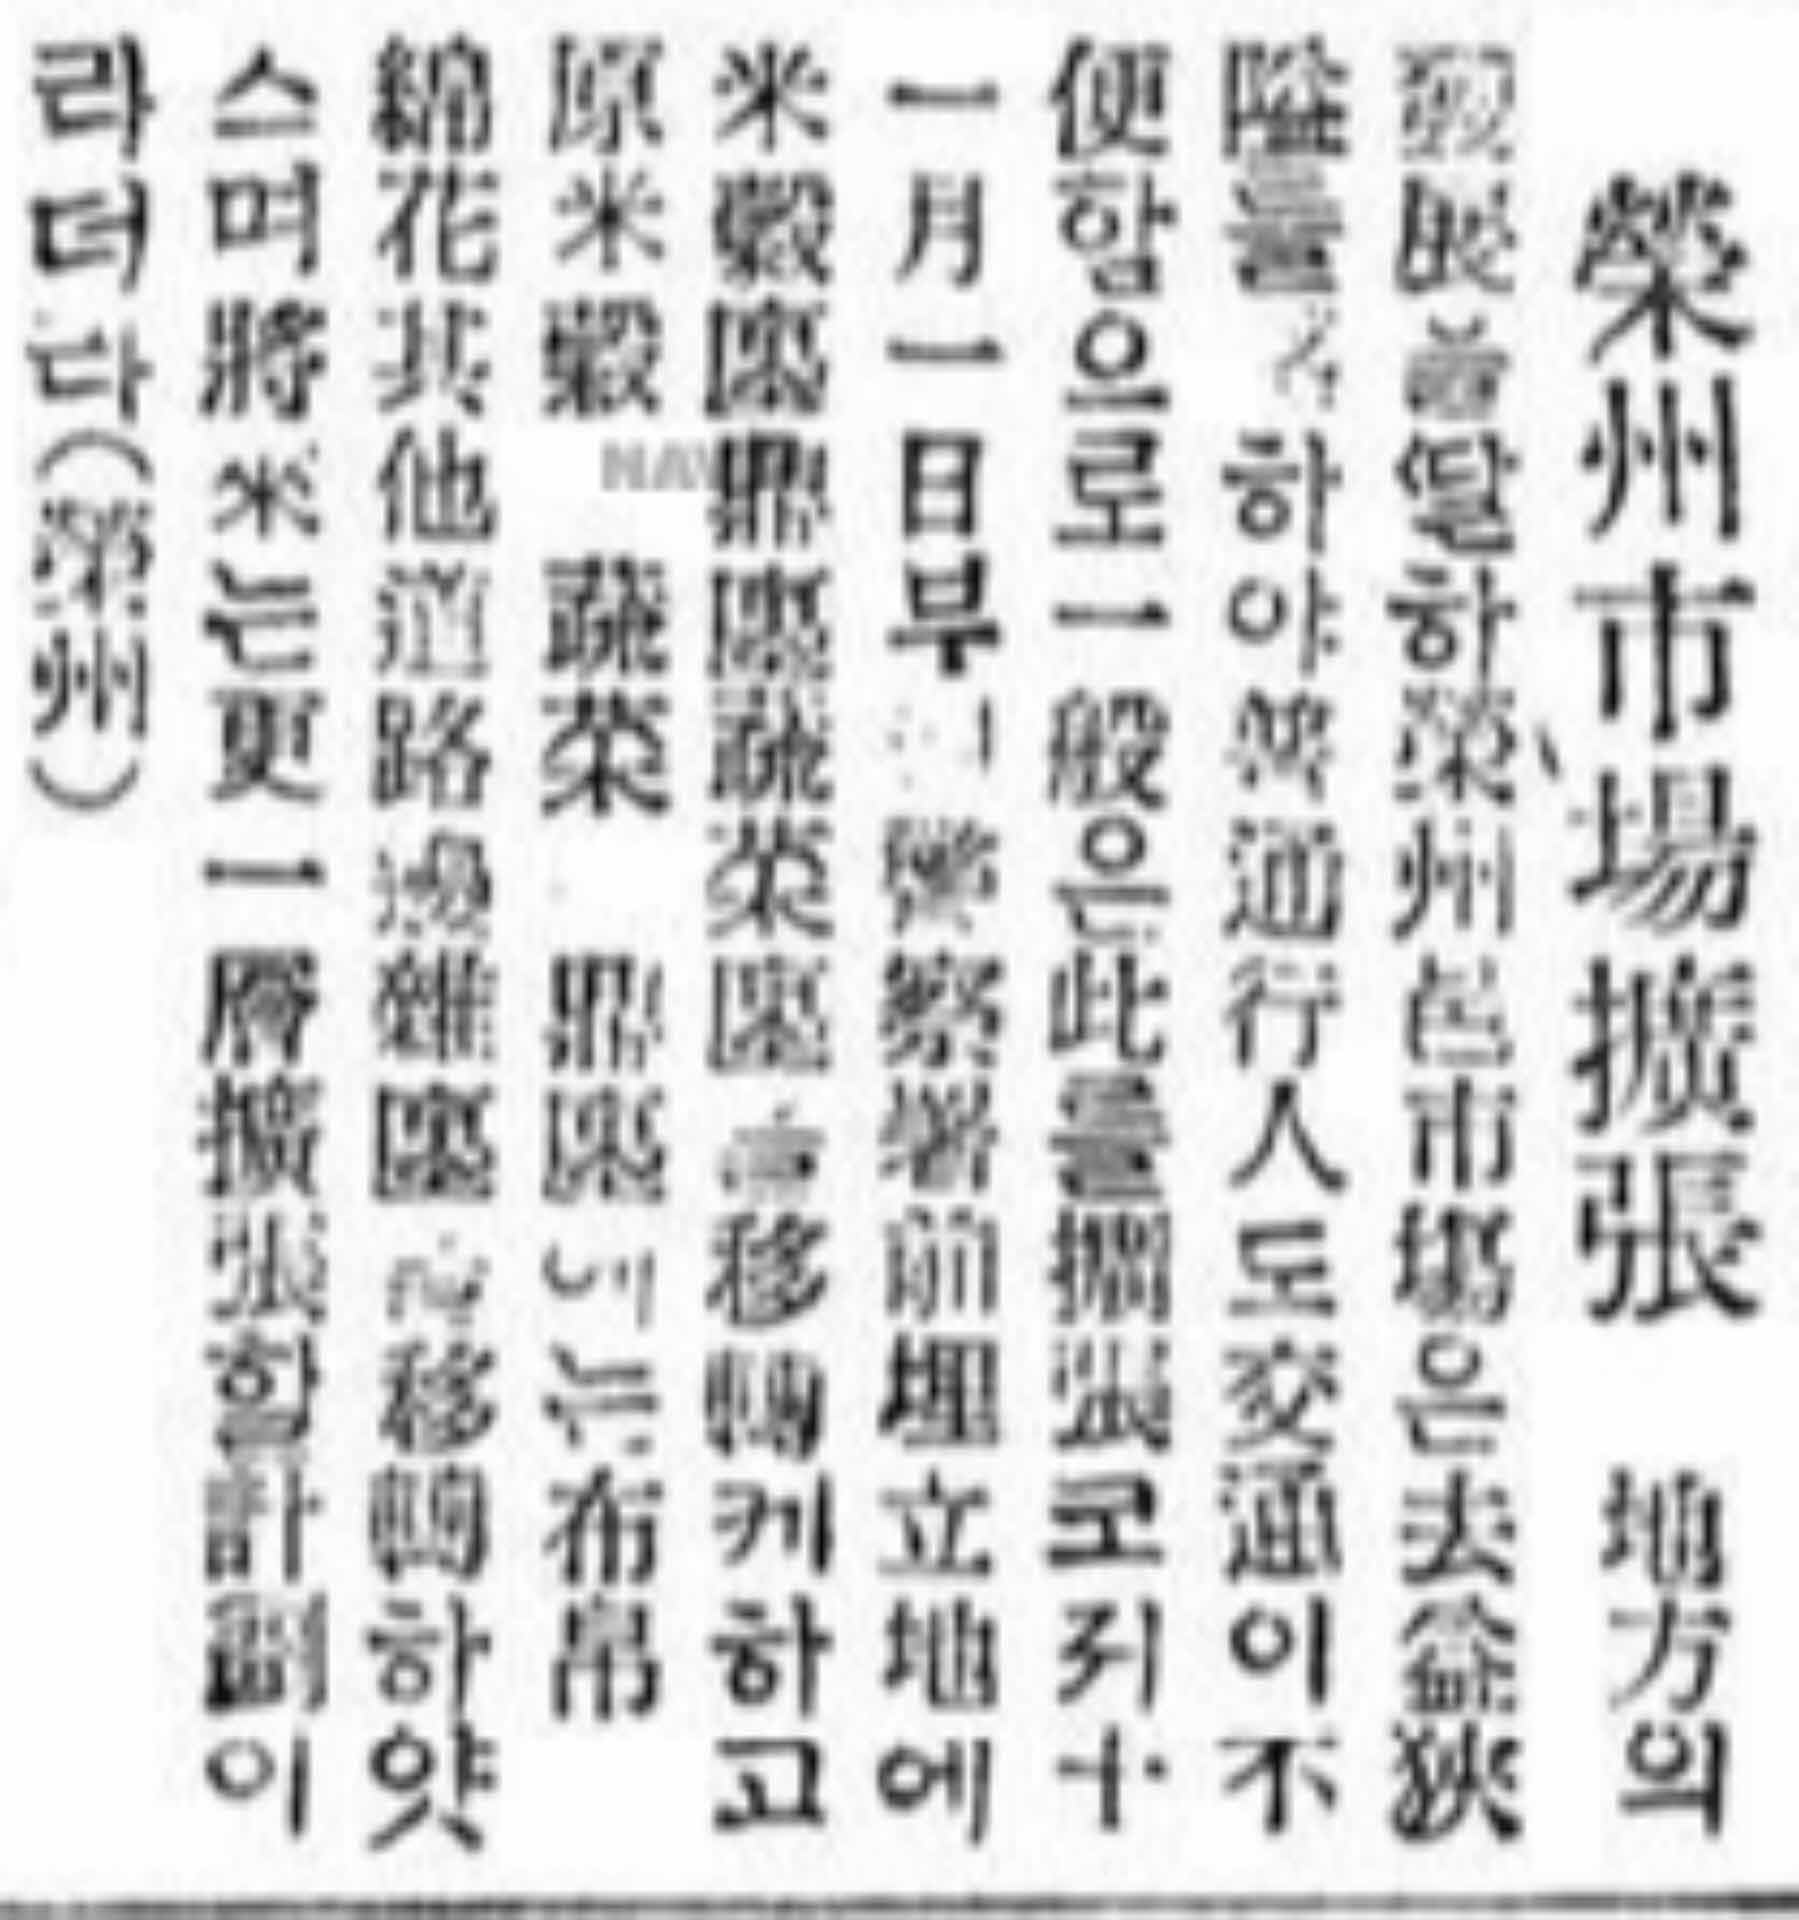 榮州市場擴張 地方의
發展을딸하榮州邑市場은去益狹
隘를 하야 通行人도交通이不
便함으로一般은此를擴張코저十
一月一日부터警察署前埋立地에
米穀廛鼎廛蔬菜廛 移轉케하고
原米穀 蔬菜 鼎廛 는布帛
綿花其他道路邊雜廛 移轉하얏
스며將來는更一層擴張할計劃이
라더다(榮州)